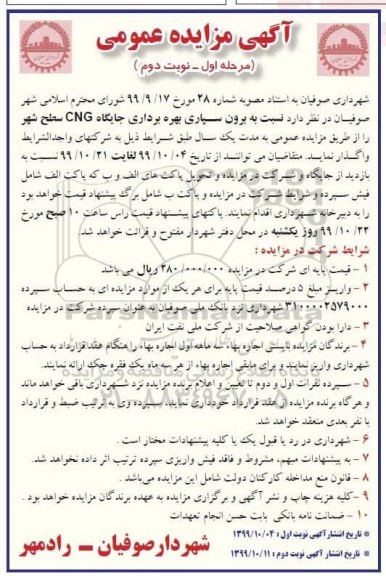 آگهی مزایده عمومی
(مرحله اول ــ نوبت دوم)
شهرداری صوفیان به استناد مصوبه شماره ۲۸ مورخ ۹۹/۹/۱۷ شورای محترم اسلامی شهر
صوفیـان در نظر دارد نسبت به برون سـپاری بهره برداری جایگاه CNG سطح شهر
را از طریق مزایده عمومی به مدت یک سال طبق شرایط ذیل به شرکتهای واجدالشرایط
واگـذار نمایـد. متقاضیان می تواننـد از تاریخ ۹۹/۱۰/۰۴ لغایت ۹۹/۱۰/۲۱ نسبت به
بازدید از جایگاه و شـرکت در مزایده و تحویل پاکت های الف و ب که پاکت الف شامل
فیش سـپرده و شرایط شرکت در مزایده و پاکت ب شامل برگ پیشنهاد قیمت خواهد بود
را به دبیرخانه شـهرداری اقدام نمایند. پاکتهای پیشـنهاد قیمت راس ساعت ۱۰ صبح مورخ
۹۹/۱۰/۲۲ روز یکشنبه در محل دفتر شهردار مفتوح و قرائت خواهد شد.
شرایط شرکت در مزایده :
۱ – قیمت پایه ای شرکت در مزایده ۲۸۰/۰۰۰/۰۰۰ ریال می باشد
۲ – واریـز مبلغ ۵ درصـد قیمت پایه برای هر یک از موارد مزایده ای به حساب سـپرده
۳۱۰۰۰۰۲۵۷۹۰۰۰ شهرداری نزد بانک ملی صوفیان به عنوان سپرده شرکت در مزایده
۳ – دارا بودن گواهی صلاحیت از شرکت ملی نفت ایران
۴ – برندگان مزایده بایستی اجاره بهاء سه ماهه اول اجاره بهاء را هنگام عقد قرارداد به حساب
شهرداری واریز نمایند و برای مابقی اجاره بهاء از هر سه ماه یک فقره چک ارائه نمایند.
۵ – سـپرده نفرات اول و دوم تا تعیین و اعلام برنده مزایده نزد شـهرداری باقی خواهد ماند
و هرگاه برنده مزایده از عقد قرارداد خودداری نماید، سـپرده وی به ترتیب ضبط و قرارداد
با نفر بعدی منعقد خواهد شد.
۶ – شهرداری در رد یا قبول یک یا کلیه پیشنهادات مختار است .
۷ – به پیشنهادات مبهم، مشروط و فاقد فیش واریزی سپرده ترتیب اثر داده نخواهد شد.
۸ – قانون منع مداخله کارکنان دولت شامل این مزایده می‌باشد .
۹ – کلیه هزینه چاپ و نشر آگهی و برگزاری مزایده به عهده برندگان مزایده خواهد بود .
۱۰ – ضمانت نامه بانکی بابت حسن انجام تعهدات
* تاریخ انتشار آگهی نوبت اول : ۱۳۹۹/۱۰/۰۴
* تاریخ انتشار آگهی نوبت دوم : ۱۳۹۹/۱۰/۱۱
شهردار صوفیان ــ رادمهر